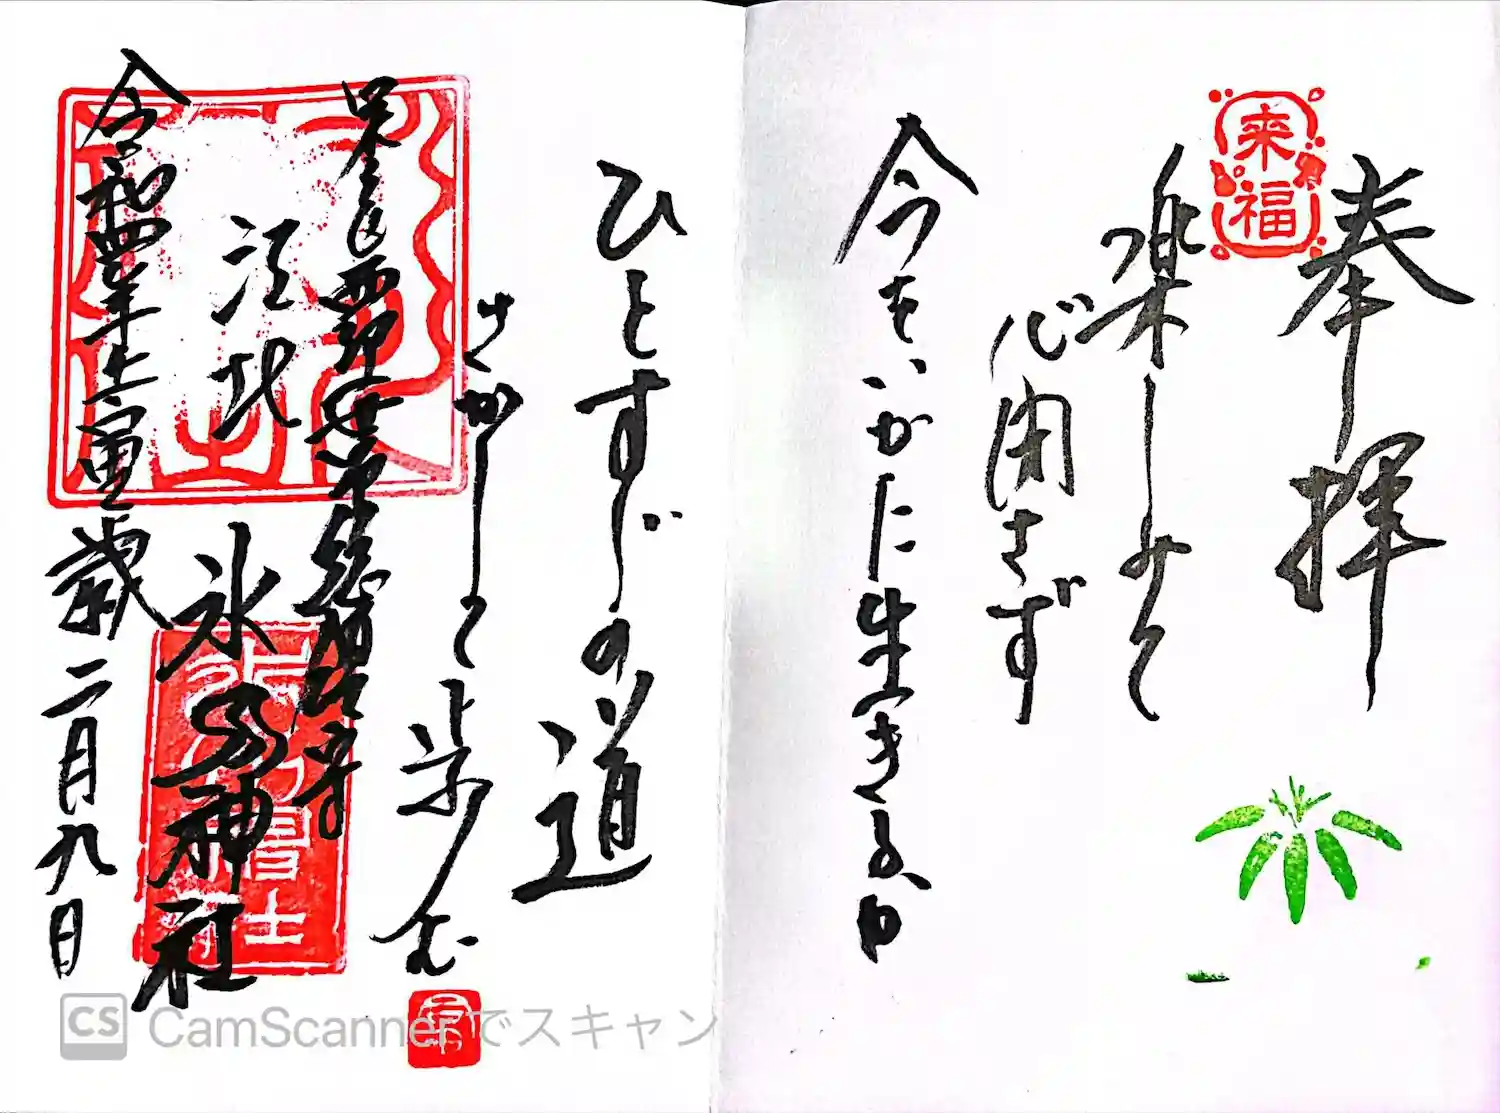 奉拝
来福
楽しみて
心閉さず
今をいかに生きるや
ひとすじの道
さがして
歩む
江北
氷川神社
令和四年壬寅歳二月九日
CS CamScannerでスキャン